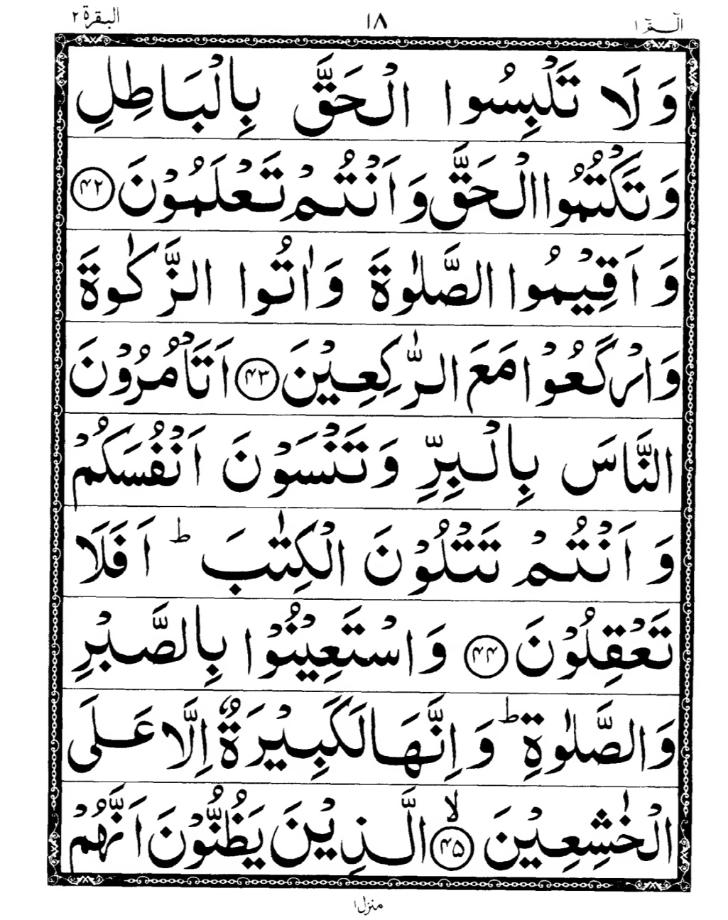 الٓمّٓ ١ ١٨ البقرة ٢
وَلَا تَلْبِسُوا الْحَقَّ بِالْبَاطِلِ
وَتَكْتُمُوا الْحَقَّ وَاَنْتُمْ تَعْلَمُوْنَ ﴿۴۲﴾
وَاَقِيْمُوا الصَّلٰوةَ وَاٰتُوا الزَّكٰوةَ
وَارْكَعُوْا مَعَ الرّٰكِعِيْنَ ﴿۴۳﴾ اَتَاْمُرُوْنَ
النَّاسَ بِالْبِرِّ وَتَنْسَوْنَ اَنْفُسَكُمْ
وَاَنْتُمْ تَتْلُوْنَ الْكِتٰبَ ؕ اَفَلَا
تَعْقِلُوْنَ ﴿۴۴﴾ وَاسْتَعِيْنُوْا بِالصَّبْرِ
وَالصَّلٰوةِ ؕ وَاِنَّهَا لَكَبِيْرَةٌ اِلَّا عَلَى
الْخٰشِعِيْنَ ﴿۴۵﴾ۙ الَّذِيْنَ يَظُنُّوْنَ اَنَّهُمْ
منزل ١